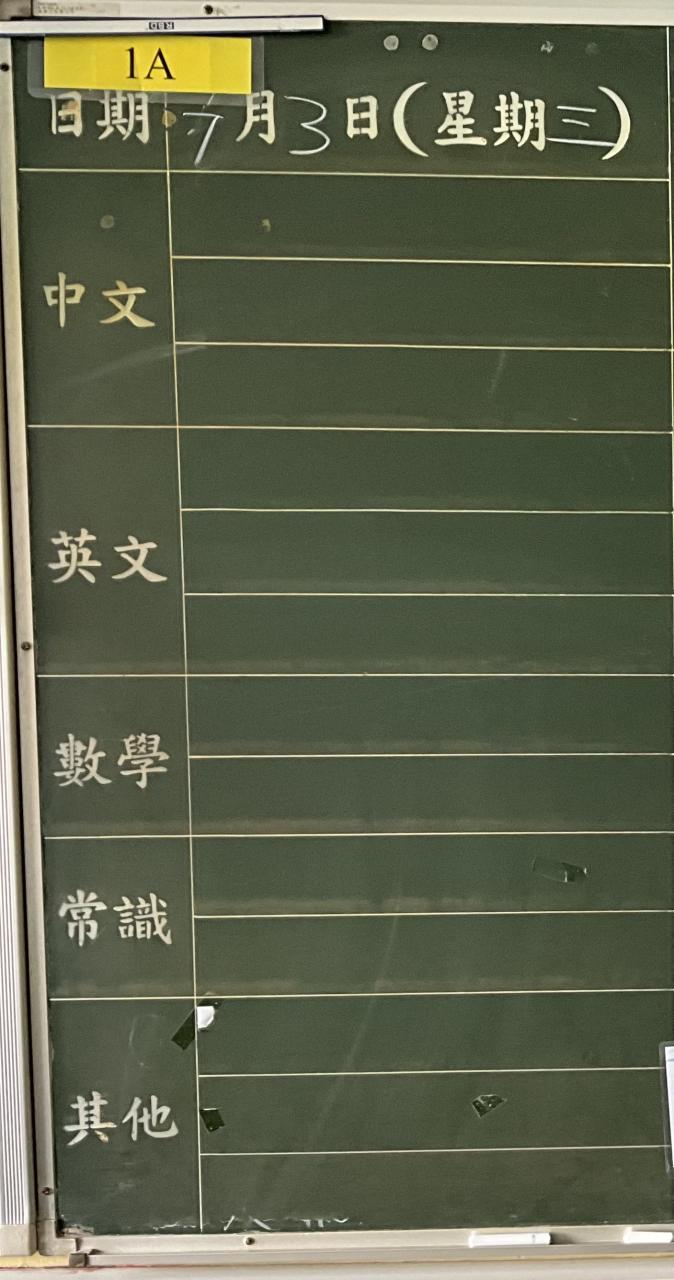 1A
日期 7月3日(星期三)
中文
英文
數學
常識
其他